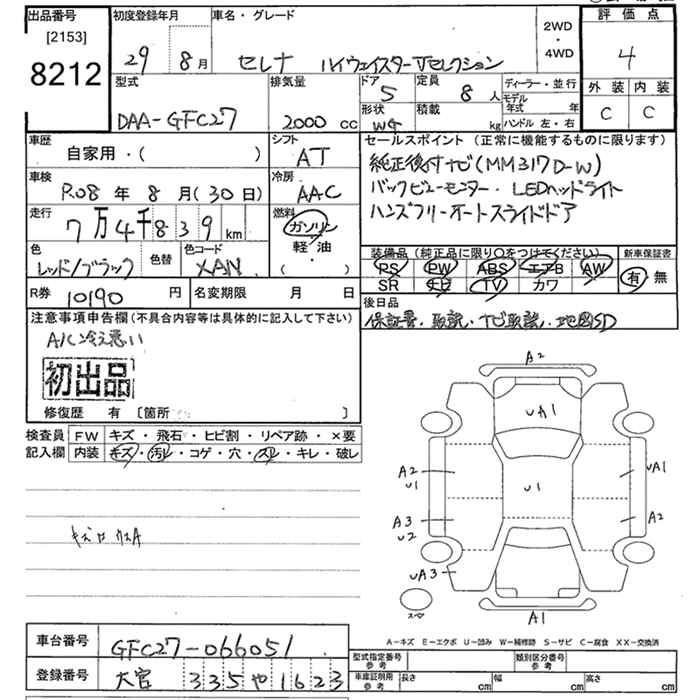 出品番号
[2153]
8212
初度登録年月
29 8月
車名・グレード
セレナ ハイウェイスターVセレクション
2WD
・
4WD
評価点
4
外装 内装
C C
型式
DAA-GFC27
排気量
2000 cc
ドア
5
定員
8 人
ディーラー・並行
モデル
年式 年
形状
WG
積載
kg
ハンドル 左・右
車歴
自家用・( )
シフト
AT
車検
R08 年 8 月 (30 日)
冷房
AAC
走行
7万4千839 km
燃料
ガソリン
軽・油
( )
色
レッド/ブラック
色替
色コード
XAN
R券
10190 円
名変期限 月 日
セールスポイント (正常に機能するものに限ります)
純正後付ナビ(MM317D-W)
バックビューモニター・LEDヘッドライト
ハンズフリーオートスライドドア
装備品 (純正品に限り○をつけてください)
PS PW ABS エアB AW
SR ナビ TV カワ
新車保証書
有 無
後日品
保証書・取説・ナビ取説・地図SD
注意事項申告欄 (不具合内容等は具体的に記入して下さい)
A/C冷え悪い
初出品
修復歴 有 〔箇所 〕
検査員
記入欄
FW キズ・飛石・ヒビ割・リペア跡・×要
内装 キズ・汚レ・コゲ・穴・スレ・キレ・破レ
A2
UA1
A2
U1
UA1
U1
A3
U2
A2
UA3
A1
スペア
A-キズ E-エクボ U-凹み W-補修跡 S-サビ C-腐食 XX-交換済
車台番号
GFC27-066051
登録番号
大宮 335 や 1623
型式指定番号
参考
類別区分番号
参考
車庫証明用
参考
長さ cm
幅 cm
高さ cm